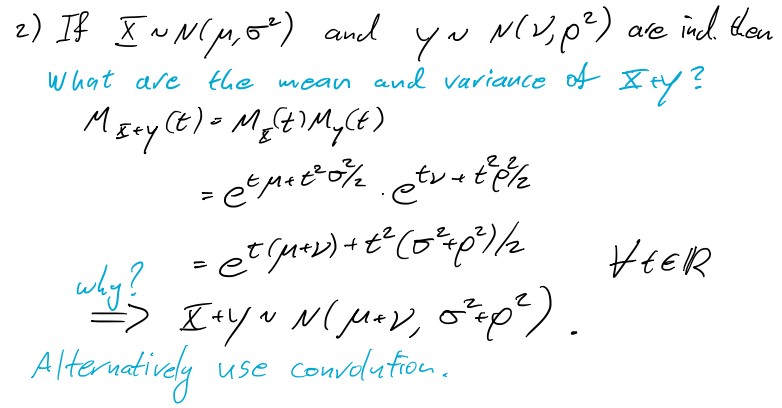 2) If X ~ N(μ, σ²) and Y ~ N(ν, ρ²) are ind. then
What are the mean and variance of X+Y?
M_{X+Y}(t) = M_X(t) M_Y(t)
= e^{tμ + t²σ²/2} · e^{tν + t²ρ²/2}
= e^{t(μ+ν) + t²(σ²+ρ²)/2} ∀ t ∈ ℝ
why?
⟹ X+Y ~ N(μ+ν, σ²+ρ²).
Alternatively use convolution.